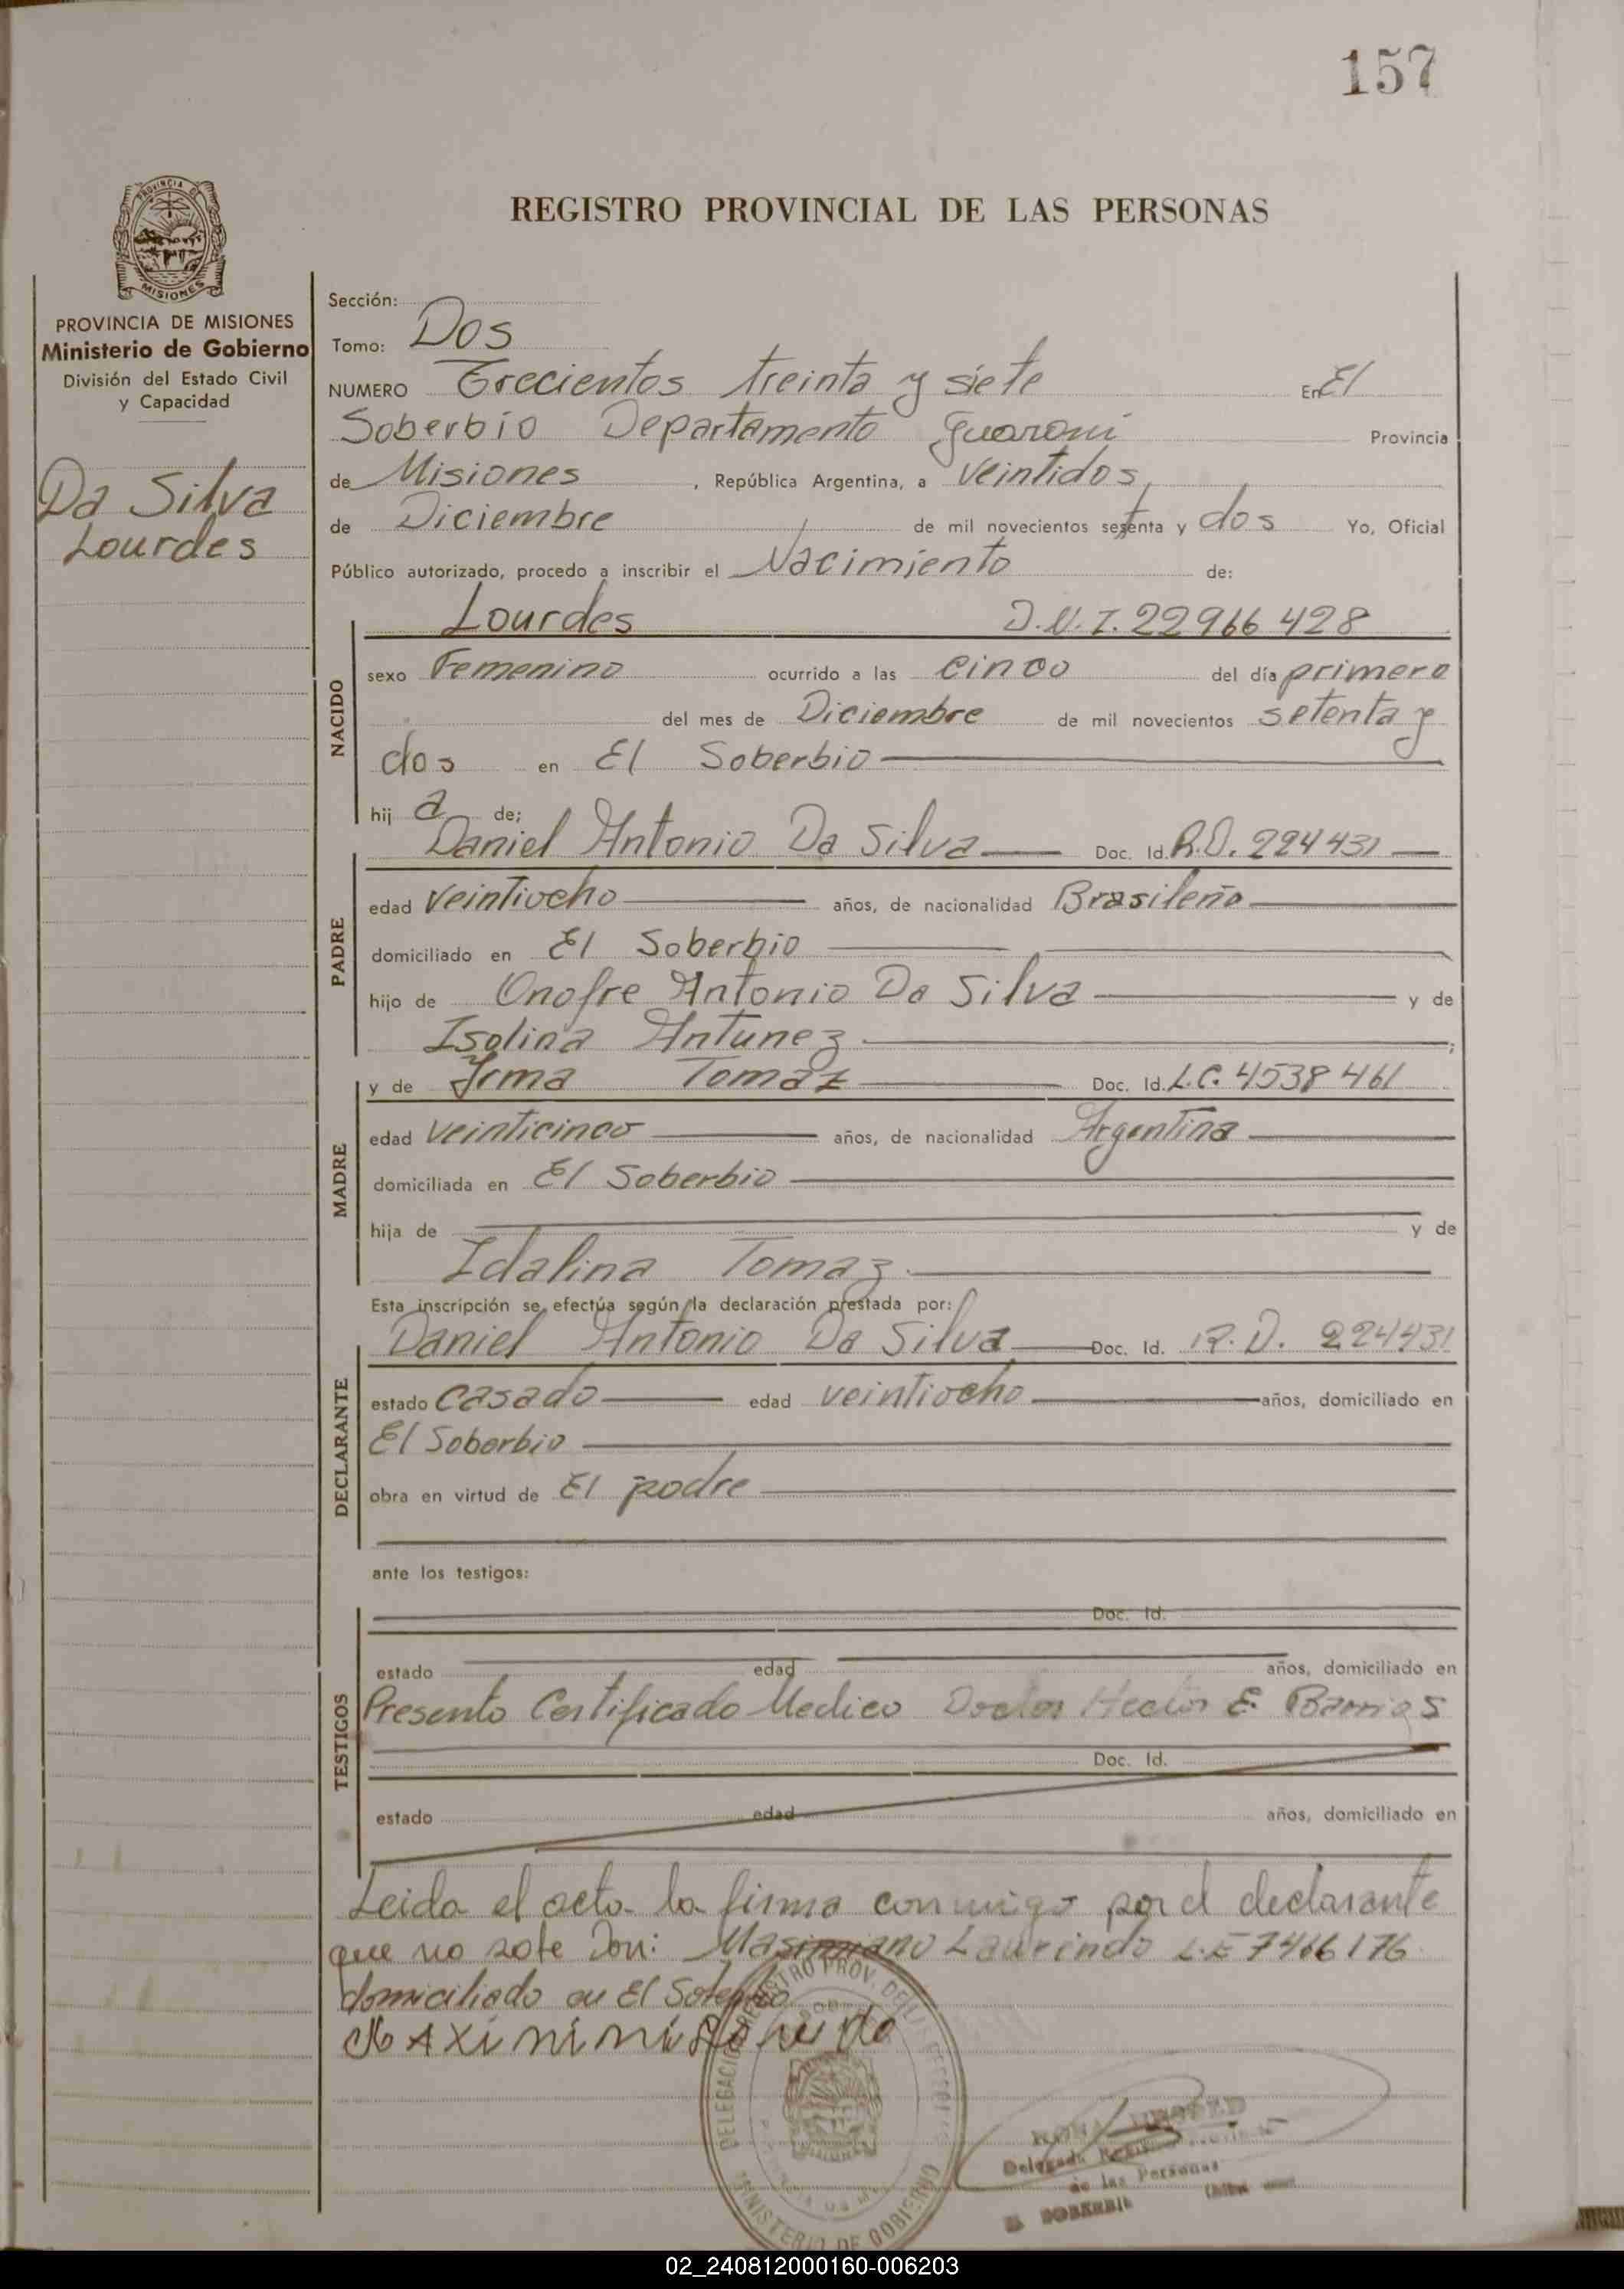 157
PROVINCIA DE MISIONES
REGISTRO PROVINCIAL DE LAS PERSONAS
PROVINCIA DE MISIONES
Ministerio de Gobierno
División del Estado Civil
y Capacidad
Da Silva
Lourdes
Sección:
Tomo: Dos
NUMERO Trecientos treinta y siete En El
Soberbio Departamento Guarani Provincia
de Misiones , República Argentina, a Veintidos
de Diciembre de mil novecientos setenta y dos Yo, Oficial
Público autorizado, procedo a inscribir el Nacimiento de:
Lourdes D.N.I. 22966428
NACIDO
sexo Femenino ocurrido a las cinco del día primero
del mes de Diciembre de mil novecientos setenta y
dos en El Soberbio
hij a de;
Daniel Antonio Da Silva Doc. Id. R.D. 224431
PADRE
edad veintiocho años, de nacionalidad Brasileño
domiciliado en El Soberbio
hijo de Onofre Antonio Da Silva y de
Isolina Antunez ;
y de Irma Tomaz Doc. Id. L.C. 4538461
MADRE
edad veinticinco años, de nacionalidad Argentina
domiciliada en El Soberbio
hija de y de
Idalina Tomaz.
Esta inscripción se efectúa según la declaración prestada por:
Daniel Antonio Da Silva Doc. Id. R.D. 224431
DECLARANTE
estado casado edad veintiocho años, domiciliado en
El Soberbio
obra en virtud de El padre
ante los testigos:
Doc. Id.
TESTIGOS
estado edad años, domiciliado en
Presento Certificado Medico Doctor Hector E. Barrios
Doc. Id.
estado edad años, domiciliado en
Leida el acta la firma conmigo por el declarante
que no sabe Don: Masimiano Laurindo L.E 7466176
domiciliado en El Soberbio
DELEGACION REGISTRO PROV. DE LAS PERSONAS
MINISTERIO DE GOBIERNO
Delegada
de las Personas
EL SOBERBIO
02_240812000160-006203